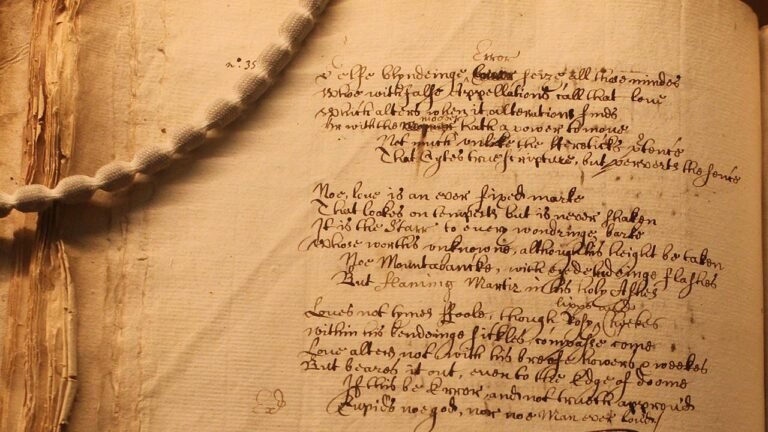 Error
n.° 35
Selfe blyndeinge seize all those mindes
Who with false Appellations call that love
Which alters when it alterations finds
mover
Or with the hath a power to move
Not much unlike the Hereticks ptence
That Cytes true scripture, but perverts the sence
Noe, love is an ever fixed marke
That lookes on tempests but is never shaken
It is the Starr to every wandringe barke
Whose worths unknowne, although his height be taken
Noe Mountabancke, with eye deludeinge flashes
But flaming Martir in his holy Ashes
lipps and
Loves not tymes foole, though Rosy Cheekes
within his bendeinge sickles compasse come
Love alters not with his breife howers & weekes
But beares it out, even to the Edge of doome
If this be Error and not truth approvd
Cupids noe god, nor noe Man ever lovd